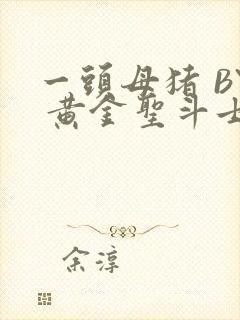 一頭母猪 BY
黄金聖斗士
余淳